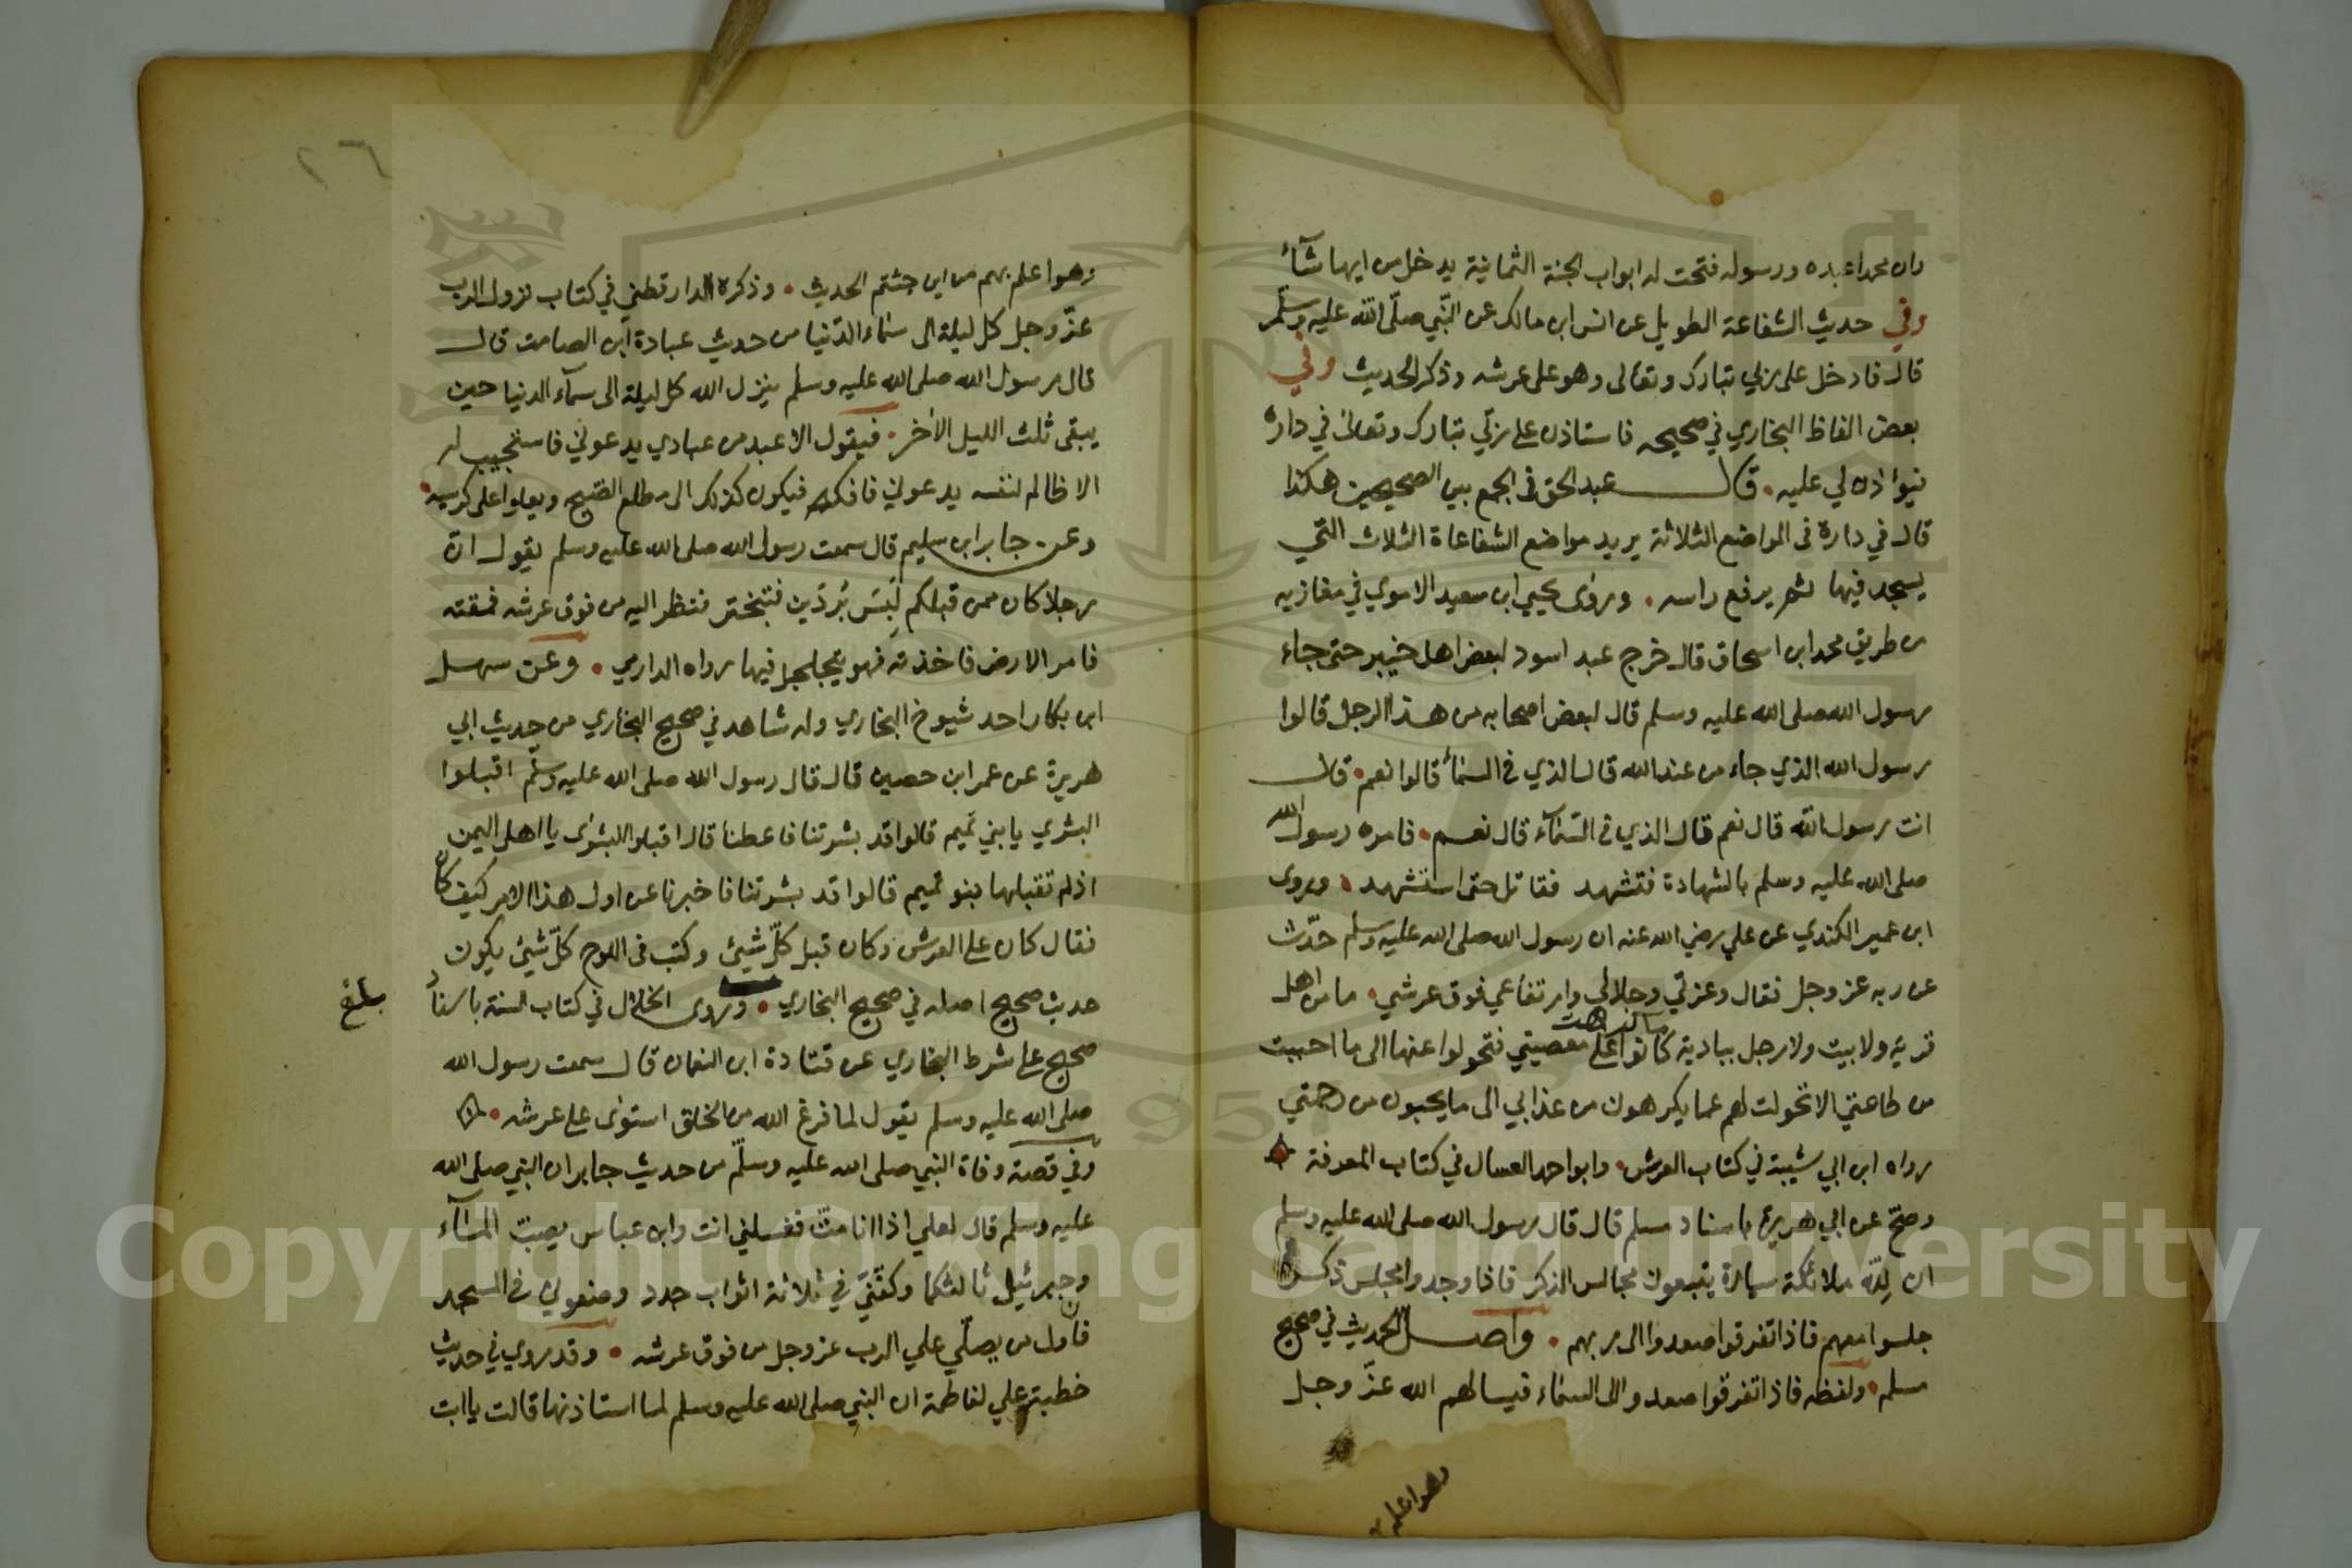 وان محمدا عبده ورسوله فتحت له ابواب الجنة الثمانية يدخل من ايها شآء
وفي حديث الشفاعة الطويل عن انس ابن مالك عن النّبي صلّى اللّه عليه وسلّم
قال فادخل على ربي تبارك وتعالى وهو على عرشه وذكر الحديث وفي
بعض الفاظ البخاري في صحيحه فاستاذن على ربّي تبارك وتعالى في داره
فيؤاذن لي عليه قال عبد الحق في الجمع بين الصحيحين هكذا
قال في داره في المواضع الثلاثة يريد مواضع الشفاعاة الثلاث التّي
يسجد فيها ثم يرفع راسه وروى يحيي ابن سعيد الاموي في مغازيه
من طريق محمد ابن اسحاق قال خرج عبد اسود لبعض اهل خيبر حتى جاء
رسول الله صلى الله عليه وسلم قال لبعض اصحابه من هذا الرجل قالوا
رسول الله الذي جاء من عند الله قال الذي في السماء قالوا نعم قال
انت رسول اللّه قال نعم قال الذي في السّمآء قال نعم فامره رسول الله
صلى الله عليه وسلم بالشهادة فتشهد فقاتل حتى استشهد وروى
ابن عمير الكندي عن علي رضي الله عنه ان رسول الله صلى الله عليه وسلم حدّث
عن ربه عز وجل فقال وعزتي وجلالي وارتفاعي فوق عرشي ما من اهل
قرية ولا بيت ولا رجل ببادية كانوا على ما كرهت معصيتي فتحولوا عنها الى ما احببت
من طاعتي الا تحولت لهم عما يكرهون من عذابي الى ما يحبون من رحمتي
رواه ابن ابي شيبة في كتاب العرش وابو احمد العسال في كتاب المعرفة
وصحّ عن ابي هريرة باسناد مسلم قال قال رسول الله صلى الله عليه وسلم
ان لِلّه ملائكة سيارة يتبعون مجالس الذكر فاذا وجدوا مجلس ذكر
جلسوا معهم فاذا تفرقوا صعدوا الى ربهم واصل الحديث في صحيح
مسلم ولفظه فاذا تفرقوا صعدوا الى السماء فيسالهم الله عزّ وجل
وهو اعلم
٢٦
وهو اعلم بهم من اين جئتم الحديث وذكره الدارقطني في كتاب نزول الرب
عزّ وجل كل ليلة الى سماء الدّنيا من حديث عبادة ابن الصامت قال
قال رسول الله صلى الله عليه وسلم ينزل الله كل ليلة الى سمآء الدنيا حين
يبقى ثلث الليل الأخر فيقول الا عبد من عبادي يدعوني فاستجيب له
الا ظالم لنفسه يدعوني فافكه فيكون كذلك الى مطلع الصّبح ويعلوا على كرسيه
وعن جابر ابن سليم قال سمعت رسول الله صلى الله عليه وسلم يقول انّ
رجلا كان ممن قبلكم لَبِسَ بُردَين فتبختر فنظر اليه من فوق عرشه فمقته
فامر الارض فاخذته فهو يتجلجل فيها رواه الدارمي وعن سهل
ابن بكار احد شيوخ البخاري وله شاهد في صحيح البخاري من حديث ابي
هريرة عن عمر ابن حصين قال قال رسول الله صلى الله عليه وسلّم اقبلوا
البشري يا بني تميم قالوا قد بشرتنا فاعطنا قال اقبلوا البشرى يا اهل اليمن
اذ لم تقبلها بنو تميم قالوا قد بشرتنا فاخبرنا عن اول هذا الامر كيف كان
فقال كان على العرش وكان قبل كلّ شيئ وكتب في اللوح كلّ شيئ يكون
حديث صحيح اصله في صحيح البخاري وروى الخلال في كتاب السنة باسناد
بلغ
صحيح على شرط البخاري عن قتادة ابن النعمان قال سمعت رسول الله
صلى الله عليه وسلم يقول لما فرغ الله من الخلق استوى على عرشه
وفي قصة وفاة النبي صلى الله عليه وسلّم من حديث جابر ان النبي صلى الله
عليه وسلم قال لعلي اذا انا متّ فغسلني انت وابن عباس يصبّ المآء
وجبرئيل ثالثكما وكفّنّي في ثلاثة اثواب جدد وضعوني في المسجد
فان اول من يصلّي علي الرب عز وجل من فوق عرشه وقد روي في حديث
خطبة علي لفاطمة ان النبي صلى الله عليه وسلم لما استاذنها قالت يا ابت
Copyright © King Saud University